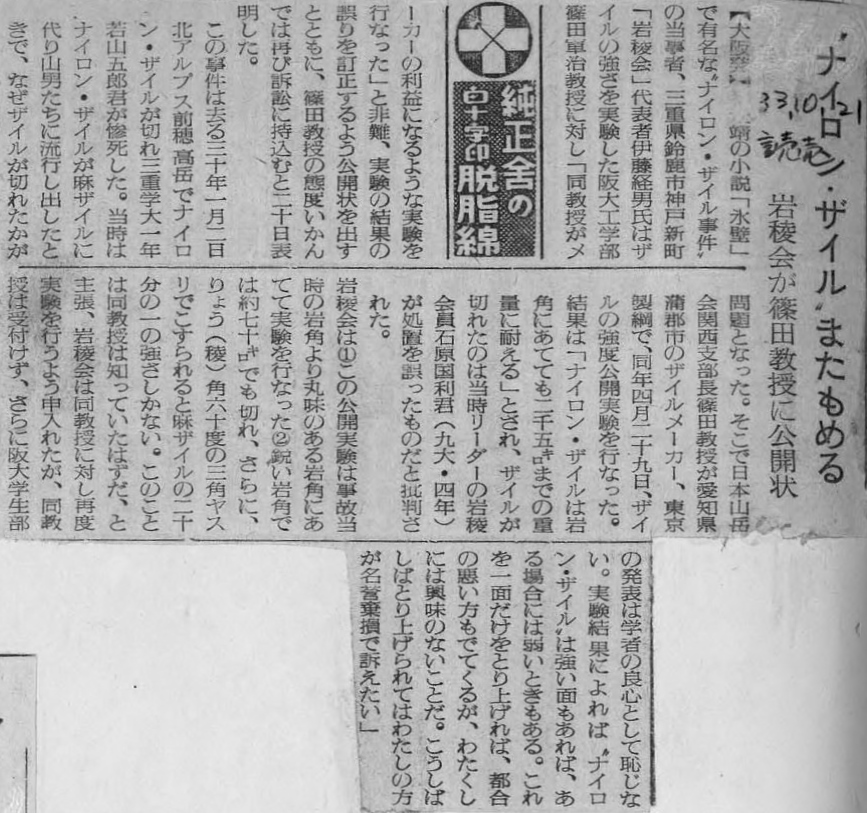 〝ナイロン・ザイル〟またもめる
岩稜会が篠田教授に公開状
33,10,21
読売
【大阪発】 靖の小説「氷壁」
で有名な〝ナイロン・ザイル事件〟
の当事者、三重県鈴鹿市神戸新町
「岩稜会」代表者伊藤経男氏はザ
イルの強さを実験した阪大工学部
篠田軍治教授に対し「同教授がメ
純正舎の
白十字印脱脂綿
ーカーの利益になるような実験を
行なった」と非難、実験の結果の
誤りを訂正するよう公開状を出す
とともに、篠田教授の態度いかん
では再び訴訟に持込むと二十日表
明した。
この事件は去る三十年一月二日
北アルプス前穂高岳でナイロ
ン・ザイルが切れ三重学大一年
若山五郎君が惨死した。当時は
ナイロン・ザイルが麻ザイルに
代り山男たちに流行し出したと
きで、なぜザイルが切れたかが
問題となった。そこで日本山岳
会関西支部長篠田教授が愛知県
蒲郡市のザイルメーカー、東京
製綱で、同年四月二十九日、ザイ
ルの強度公開実験を行なった。
結果は「ナイロン・ザイルは岩
角にあてても二千五㌔までの重
量に耐える」とされ、ザイルが
切れたのは当時リーダーの岩稜
会員石原国利君（九大・四年）
が処置を誤ったものだと批判さ
れた。
岩稜会は①この公開実験は事故当
時の岩角より丸味のある岩角にあ
てて実験を行なった②鋭い岩角で
は約七十㌔でも切れ、さらに、
りょう（稜）角六十度の三角ヤス
リでこすられると麻ザイルの二十
分の一の強さしかない。このこと
は同教授は知っていたはずだ、と
主張、岩稜会は同教授に対し再度
実験を行うよう申入れたが、同教
授は受付けず、さらに阪大学生部
の発表は学者の良心として恥じな
い。実験結果によれば〝ナイロ
ン・ザイル〟は強い面もあれば、あ
る場合には弱いときもある。これ
を一面だけをとり上げれば、都合
の悪い方もでてくるが、わたくし
には興味のないことだ。こうしば
しばとり上げられてはわたしの方
が名誉棄損で訴えたい」